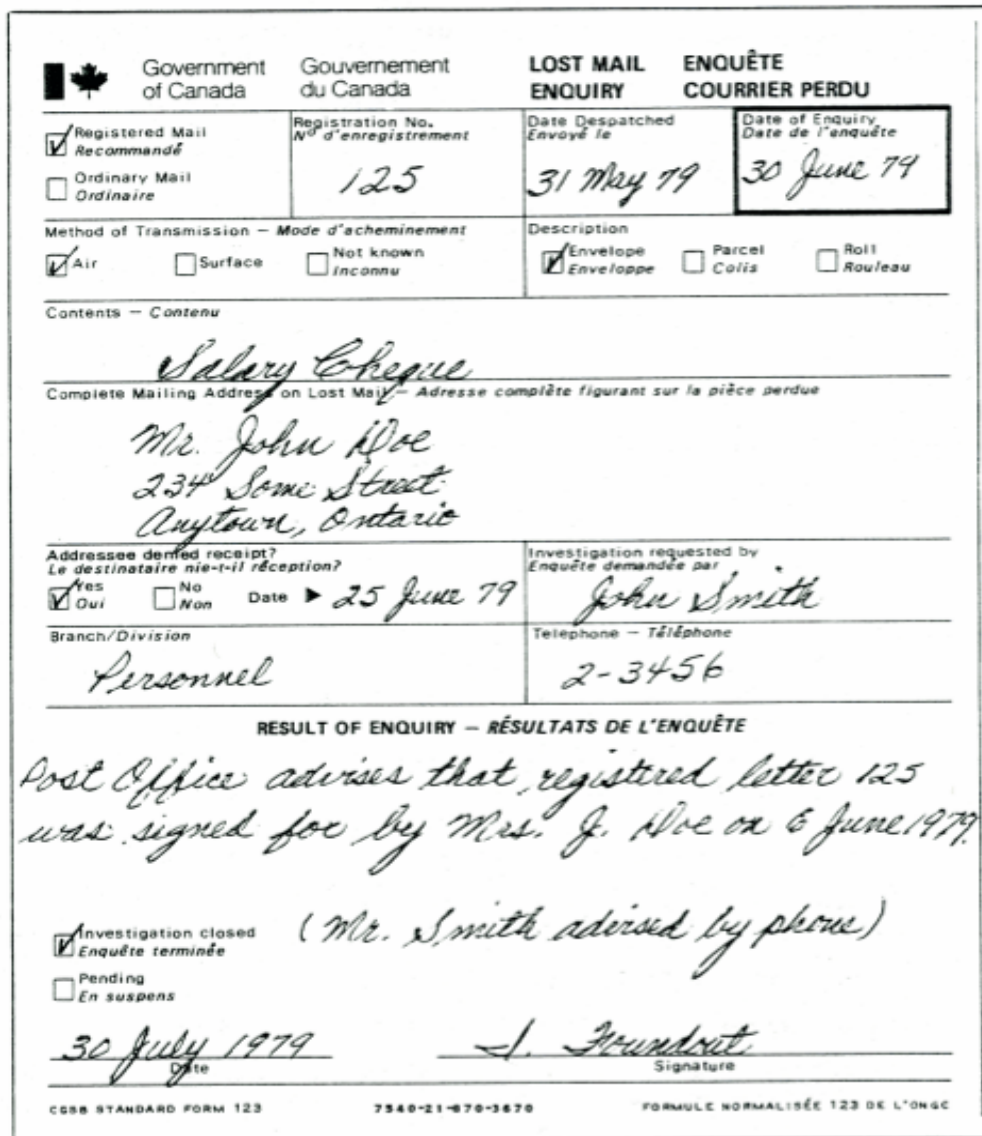 Government of Canada Gouvernement du Canada LOST MAIL ENQUIRY ENQUÊTE COURRIER PERDU
Registered Mail
Recommandé
Ordinary Mail
Ordinaire
Registration No.
Nº d'enregistrement
125
Date Despatched
Envoyé le
31 May 79
Date of Enquiry
Date de l'enquête
30 June 79
Method of Transmission — Mode d'acheminement
Air Surface Not known
Inconnu
Description
Envelope Parcel Roll
Enveloppe Colis Rouleau
Contents — Contenu
Salary Cheque
Complete Mailing Address on Lost Mail — Adresse complète figurant sur la pièce perdue
Mr. John Doe
234 Some Street
Anytown, Ontario
Addressee denied receipt?
Le destinataire nie-t-il réception?
Yes No
Oui Non Date ▶ 25 June 79
Investigation requested by
Enquête demandée par
John Smith
Branch/Division
Personnel
Telephone — Téléphone
2-3456
RESULT OF ENQUIRY — RÉSULTATS DE L'ENQUÊTE
Post Office advises that registered letter 125
was signed for by Mrs. J. Doe on 6 June 1979.
Investigation closed (Mr. Smith advised by phone)
Enquête terminée
Pending
En suspens
30 July 1979 I. Foundout
Date Signature
CGSB STANDARD FORM 123 7540-21-870-3670 FORMULE NORMALISÉE 123 DE L'ONGC